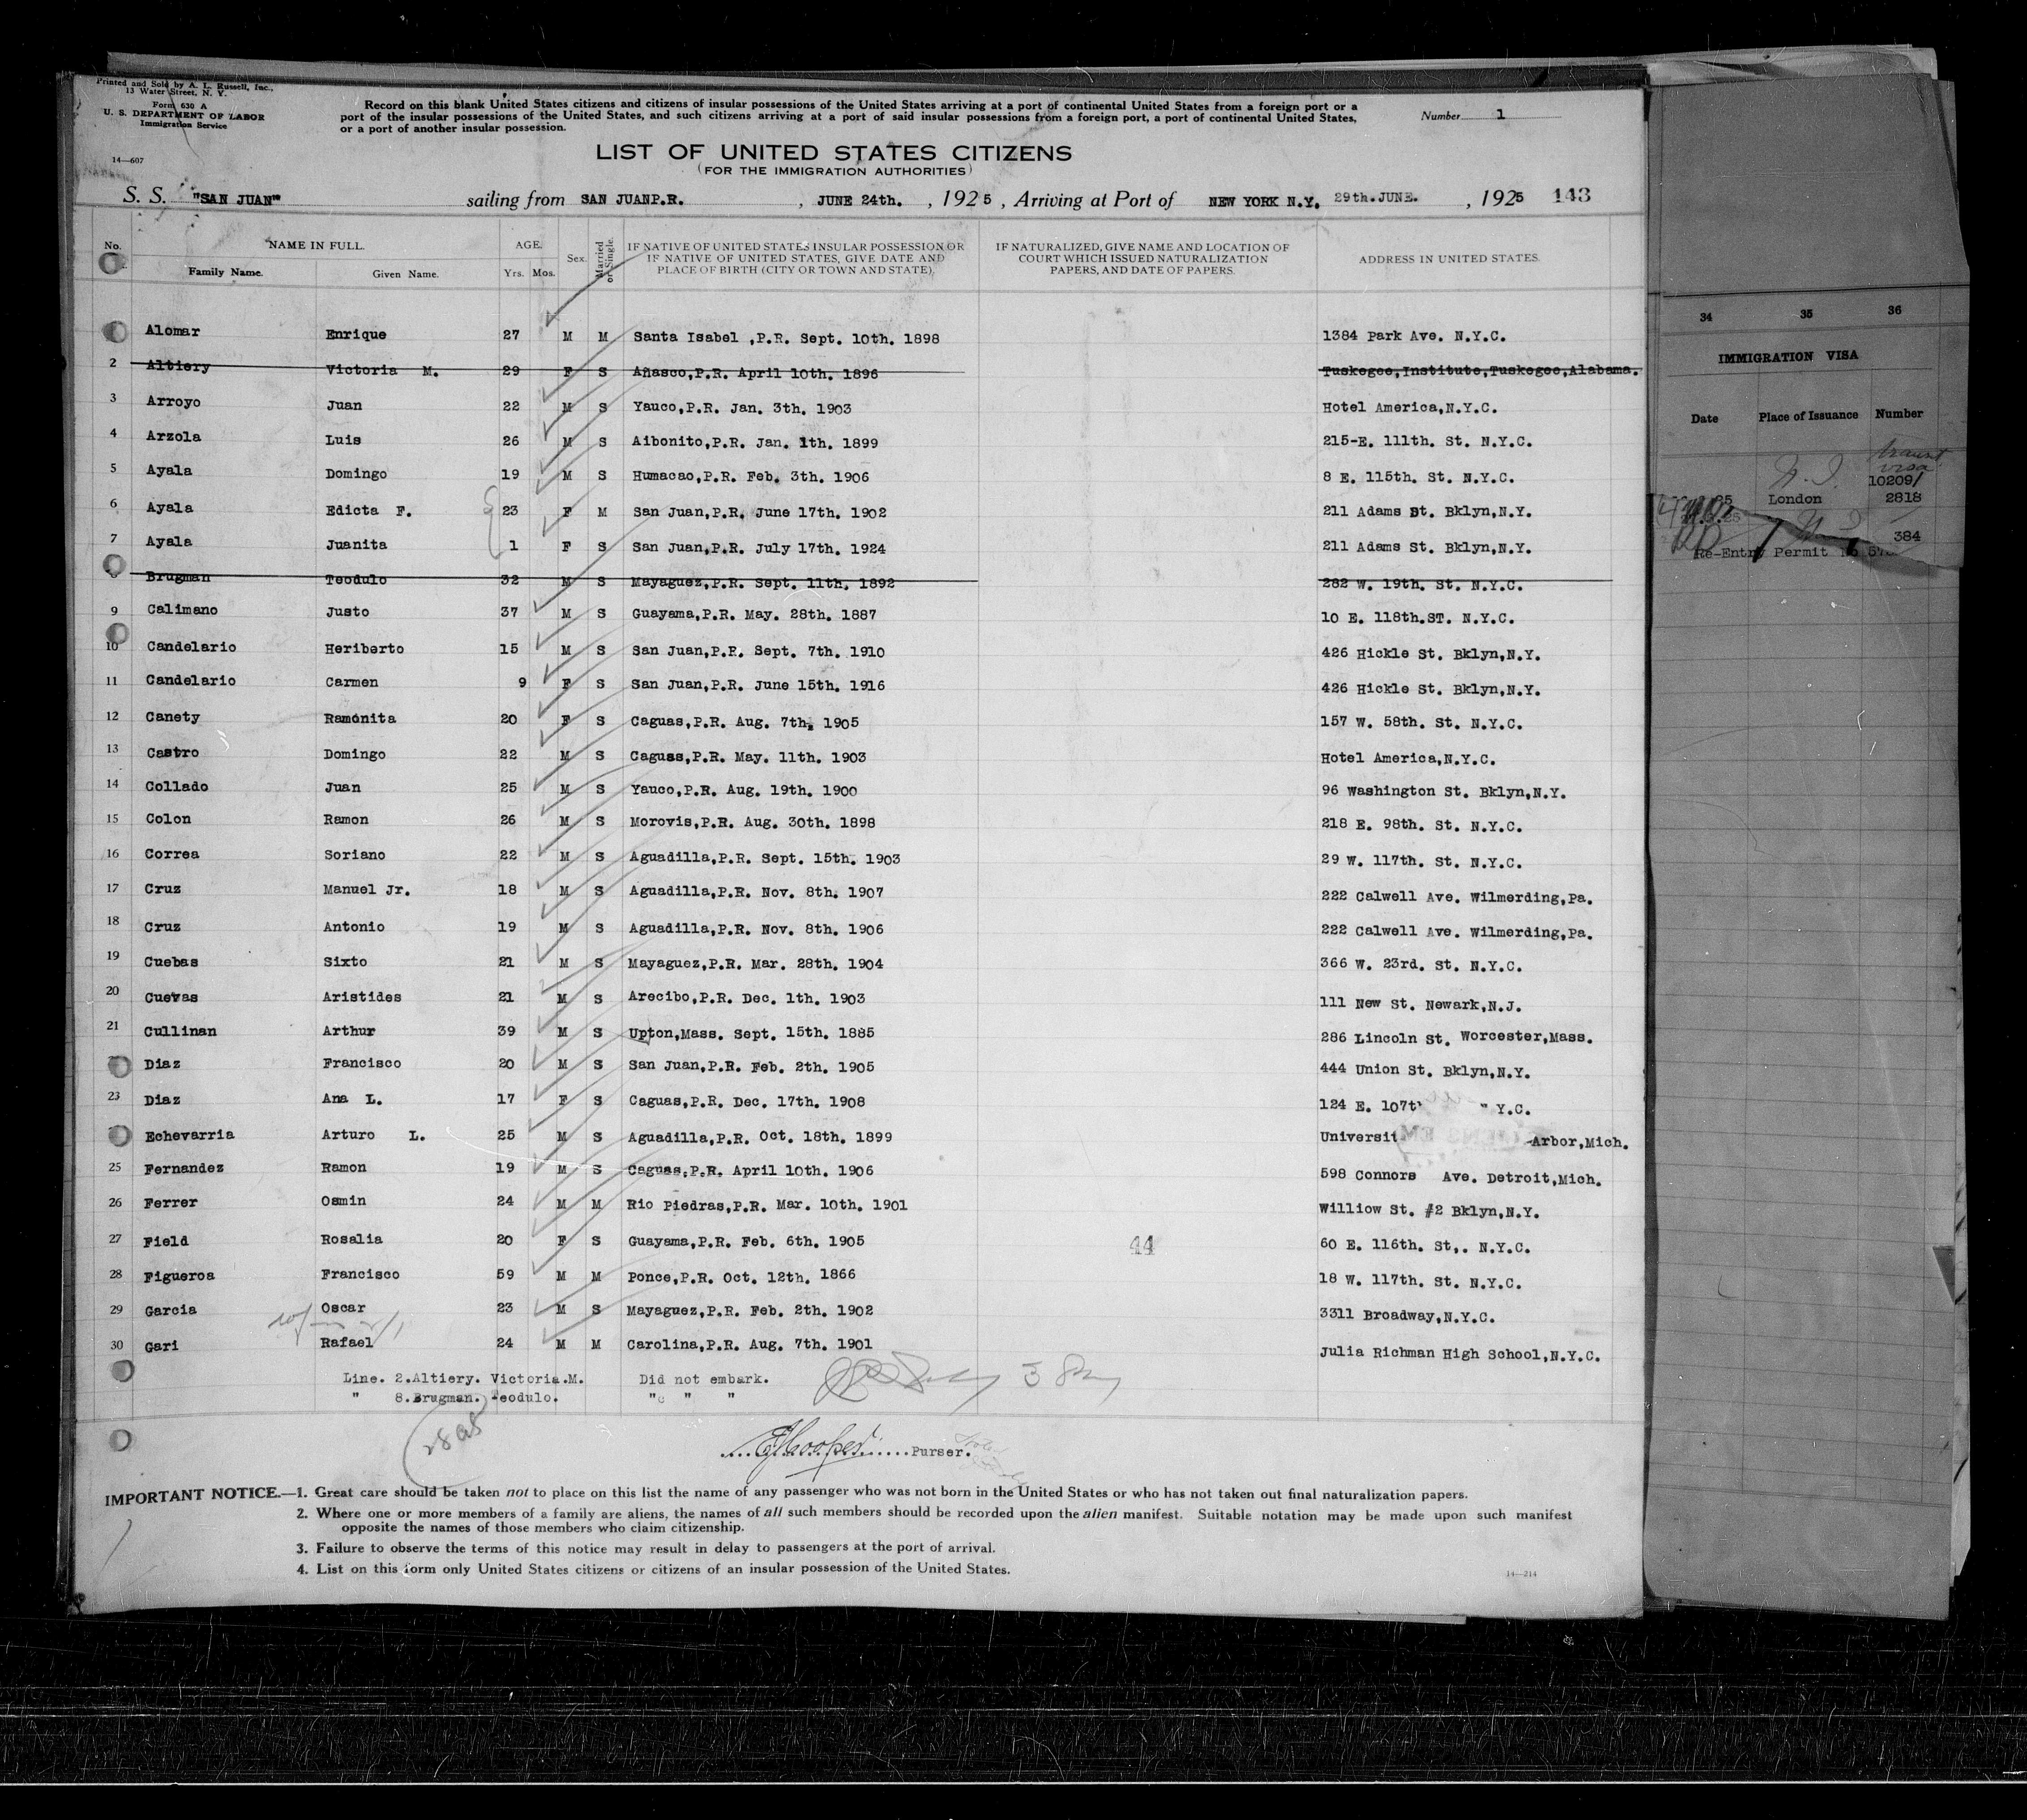 Printed and Sold by A. L. Russell, Inc.,
13 Water Street, N. Y.
Form 630 A
U. S. DEPARTMENT OF LABOR
Immigration Service
14—607
Record on this blank United States citizens and citizens of insular possessions of the United States arriving at a port of continental United States from a foreign port or a
port of the insular possessions of the United States, and such citizens arriving at a port of said insular possessions from a foreign port, a port of continental United States,
or a port of another insular possession.
Number 1
LIST OF UNITED STATES CITIZENS
(FOR THE IMMIGRATION AUTHORITIES)
S. S. "SAN JUAN" sailing from SAN JUANP.R. , JUNE 24th. , 1925 , Arriving at Port of NEW YORK N.Y. 29th.JUNE. , 1925 143
No. NAME IN FULL. AGE. Sex. Married or Single. IF NATIVE OF UNITED STATES INSULAR POSSESSION OR IF NATIVE OF UNITED STATES, GIVE DATE AND PLACE OF BIRTH (CITY OR TOWN AND STATE). IF NATURALIZED, GIVE NAME AND LOCATION OF COURT WHICH ISSUED NATURALIZATION PAPERS, AND DATE OF PAPERS. ADDRESS IN UNITED STATES.
Family Name. Given Name. Yrs. Mos.
Alomar Enrique 27 M M Santa Isabel ,P.R. Sept. 10th. 1898 1384 Park Ave. N.Y.C.
2 Altiery Victoria M. 29 F S Añasco,P.R. April 10th. 1896 Tuskegee,Institute,Tuskegee,Alabama.
3 Arroyo Juan 22 M S Yauco,P.R. Jan. 3th. 1903 Hotel America,N.Y.C.
4 Arzola Luis 26 M S Aibonito,P.R. Jan. 1th. 1899 215-E. 111th. St. N.Y.C.
5 Ayala Domingo 19 M S Humacao,P.R. Feb. 3th. 1906 8 E. 115th. St. N.Y.C.
6 Ayala Edicta F. 23 F M San Juan,P.R. June 17th. 1902 211 Adams St. Bklyn,N.Y.
7 Ayala Juanita 1 F S San Juan,P.R. July 17th. 1924 211 Adams St. Bklyn,N.Y.
Brugman Teodulo 32 M S Mayaguez,P.R. Sept. 11th. 1892 282 W. 19th. St. N.Y.C.
9 Calimano Justo 37 M S Guayama,P.R. May. 28th. 1887 10 E. 118th.ST. N.Y.C.
10 Candelario Heriberto 15 M S San Juan,P.R. Sept. 7th. 1910 426 Hickle St. Bklyn,N.Y.
11 Candelario Carmen 9 F S San Juan,P.R. June 15th. 1916 426 Hickle St. Bklyn,N.Y.
12 Canety Ramonita 20 F S Caguas,P.R. Aug. 7th. 1905 157 W. 58th. St. N.Y.C.
13 Castro Domingo 22 M S Caguas,P.R. May. 11th. 1903 Hotel America,N.Y.C.
14 Collado Juan 25 M S Yauco,P.R. Aug. 19th. 1900 96 Washington St. Bklyn,N.Y.
15 Colon Ramon 26 M S Morovis,P.R. Aug. 30th. 1898 218 E. 98th. St. N.Y.C.
16 Correa Soriano 22 M S Aguadilla,P.R. Sept. 15th. 1903 29 W. 117th. St. N.Y.C.
17 Cruz Manuel Jr. 18 M S Aguadilla,P.R. Nov. 8th. 1907 222 Calwell Ave. Wilmerding,Pa.
18 Cruz Antonio 19 M S Aguadilla,P.R. Nov. 8th. 1906 222 Calwell Ave. Wilmerding,Pa.
19 Cuebas Sixto 21 M S Mayaguez,P.R. Mar. 28th. 1904 366 W. 23rd. St. N.Y.C.
20 Cuevas Aristides 21 M S Arecibo,P.R. Dec. 1th. 1903 111 New St. Newark,N.J.
21 Cullinan Arthur 39 M S Upton,Mass. Sept. 15th. 1885 286 Lincoln St. Worcester,Mass.
Diaz Francisco 20 M S San Juan,P.R. Feb. 2th. 1905 444 Union St. Bklyn,N.Y.
23 Diaz Ana L. 17 F S Caguas,P.R. Dec. 17th. 1908 124 E. 107t Y.C.
Echevarria Arturo L. 25 M S Aguadilla,P.R. Oct. 18th. 1899 Universit Arbor,Mich.
25 Fernandez Ramon 19 M S Caguas,P.R. April 10th. 1906 598 Connors Ave. Detroit,Mich.
26 Ferrer Osmin 24 M M Rio Piedras,P.R. Mar. 10th. 1901 Williow St. #2 Bklyn,N.Y.
27 Field Rosalia 20 F S Guayama,P.R. Feb. 6th. 1905 44 60 E. 116th. St,. N.Y.C.
28 Figueroa Francisco 59 M M Ponce,P.R. Oct. 12th. 1866 18 W. 117th. St. N.Y.C.
29 Garcia Oscar 23 M S Mayaguez,P.R. Feb. 2th. 1902 3311 Broadway,N.Y.C.
30 Gari Rafael 24 M M Carolina,P.R. Aug. 7th. 1901 Julia Richman High School,N.Y.C.
Line. 2.Altiery. Victoria.M. Did not embark.
" 8.Brugman. Teodulo. " " "
Purser.
IMPORTANT NOTICE.—1. Great care should be taken not to place on this list the name of any passenger who was not born in the United States or who has not taken out final naturalization papers.
2. Where one or more members of a family are aliens, the names of all such members should be recorded upon the alien manifest. Suitable notation may be made upon such manifest
opposite the names of those members who claim citizenship.
3. Failure to observe the terms of this notice may result in delay to passengers at the port of arrival.
4. List on this form only United States citizens or citizens of an insular possession of the United States.
14—214
34 35 36
IMMIGRATION VISA
Date Place of Issuance Number
transit
visa
10209/
London 2818
384
Re-Entry Permit